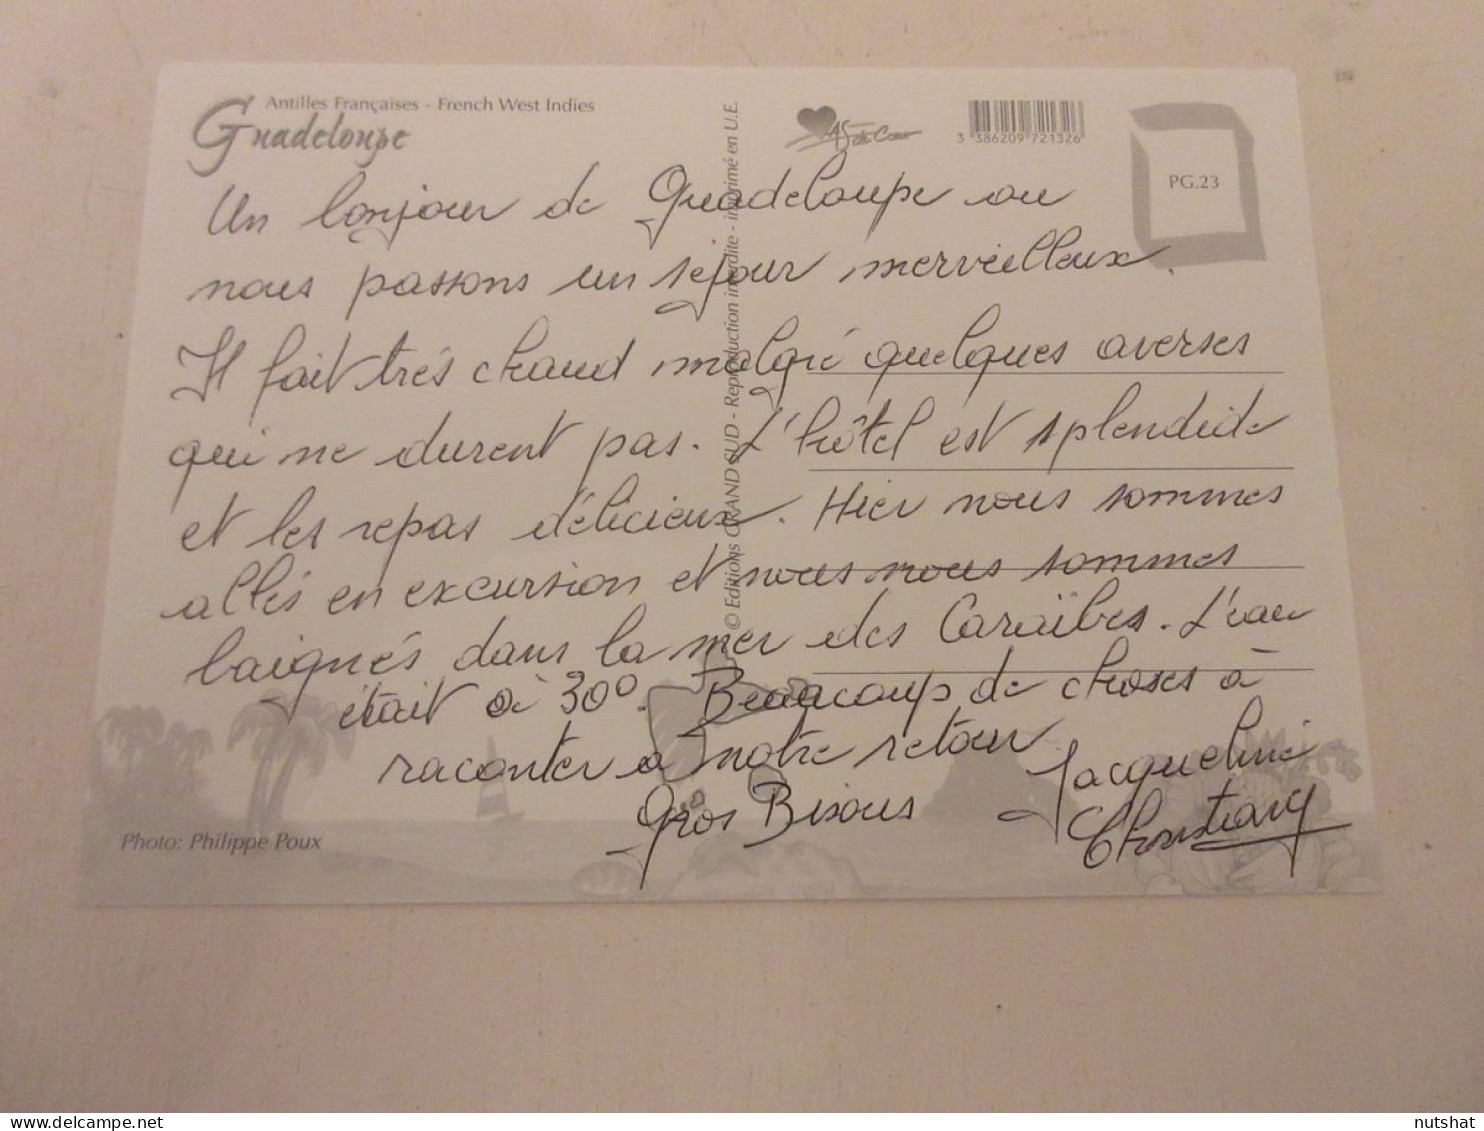 Antilles Françaises - French West Indies
Guadeloupe
As de Cœur
3 386209 721326
PG.23
© Editions GRAND SUD - Reproduction interdite - imprimé en U.E.
Un bonjour de Guadeloupe ou
nous passons un séjour merveilleux.
Il fait très chaud malgré quelques averses
qui ne durent pas. L'hôtel est splendide
et les repas délicieux. Hier nous sommes
allés en excursion et nous nous sommes
baignés dans la mer des Caraïbes. L'eau
était à 30°. Beaucoup de choses à
raconter à notre retour.
Gros Bisous
Jacqueline
Christian
Photo: Philippe Poux
delcampe.net
nutshat